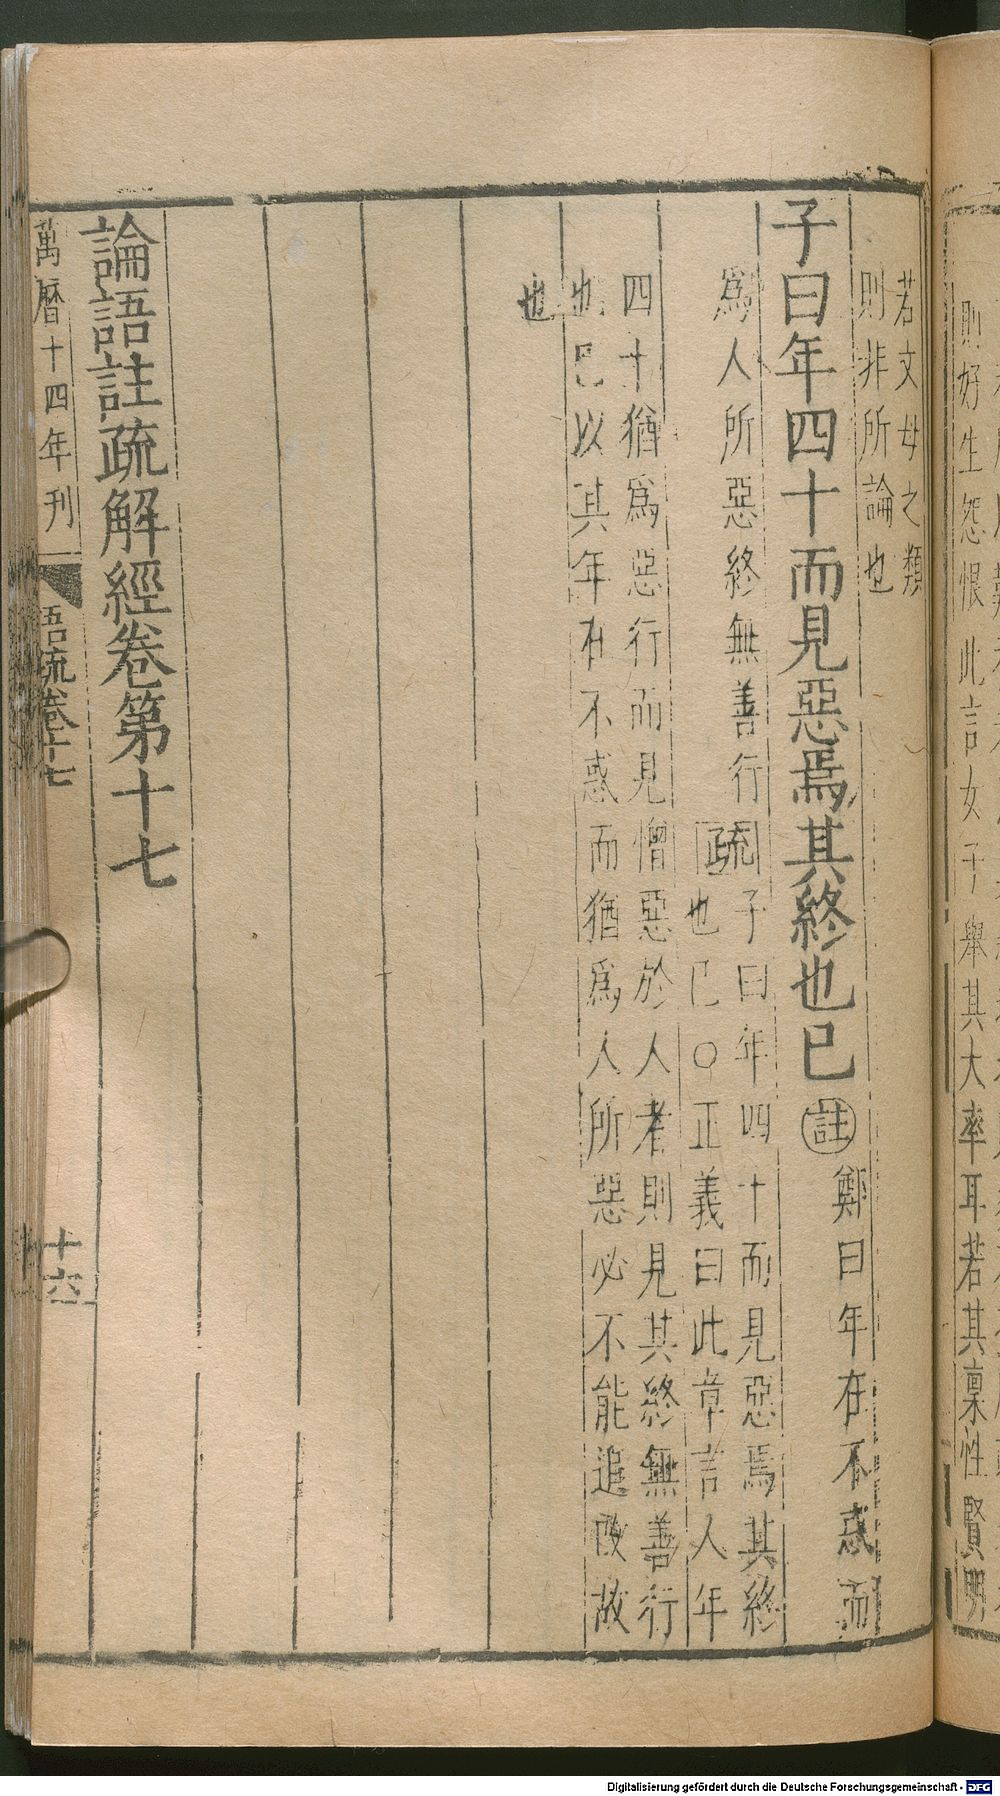 則好生怨恨此言女子舉其大率耳若其稟性賢明
若文母之類
則非所論也
子曰年四十而見惡焉其終也已註鄭曰年在不惑而
爲人所惡終無善行疏子曰年四十而見惡焉其終
也已〇正義曰此章言人年
四十猶爲惡行而見憎惡於人者則見其終無善行
也已以其年在不惑而猶爲人所惡必不能追改故
也
論語註疏解經卷第十七
萬曆十四年刊
語疏卷十七
十六
Digitalisierung gefördert durch die Deutsche Forschungsgemeinschaft - DFG